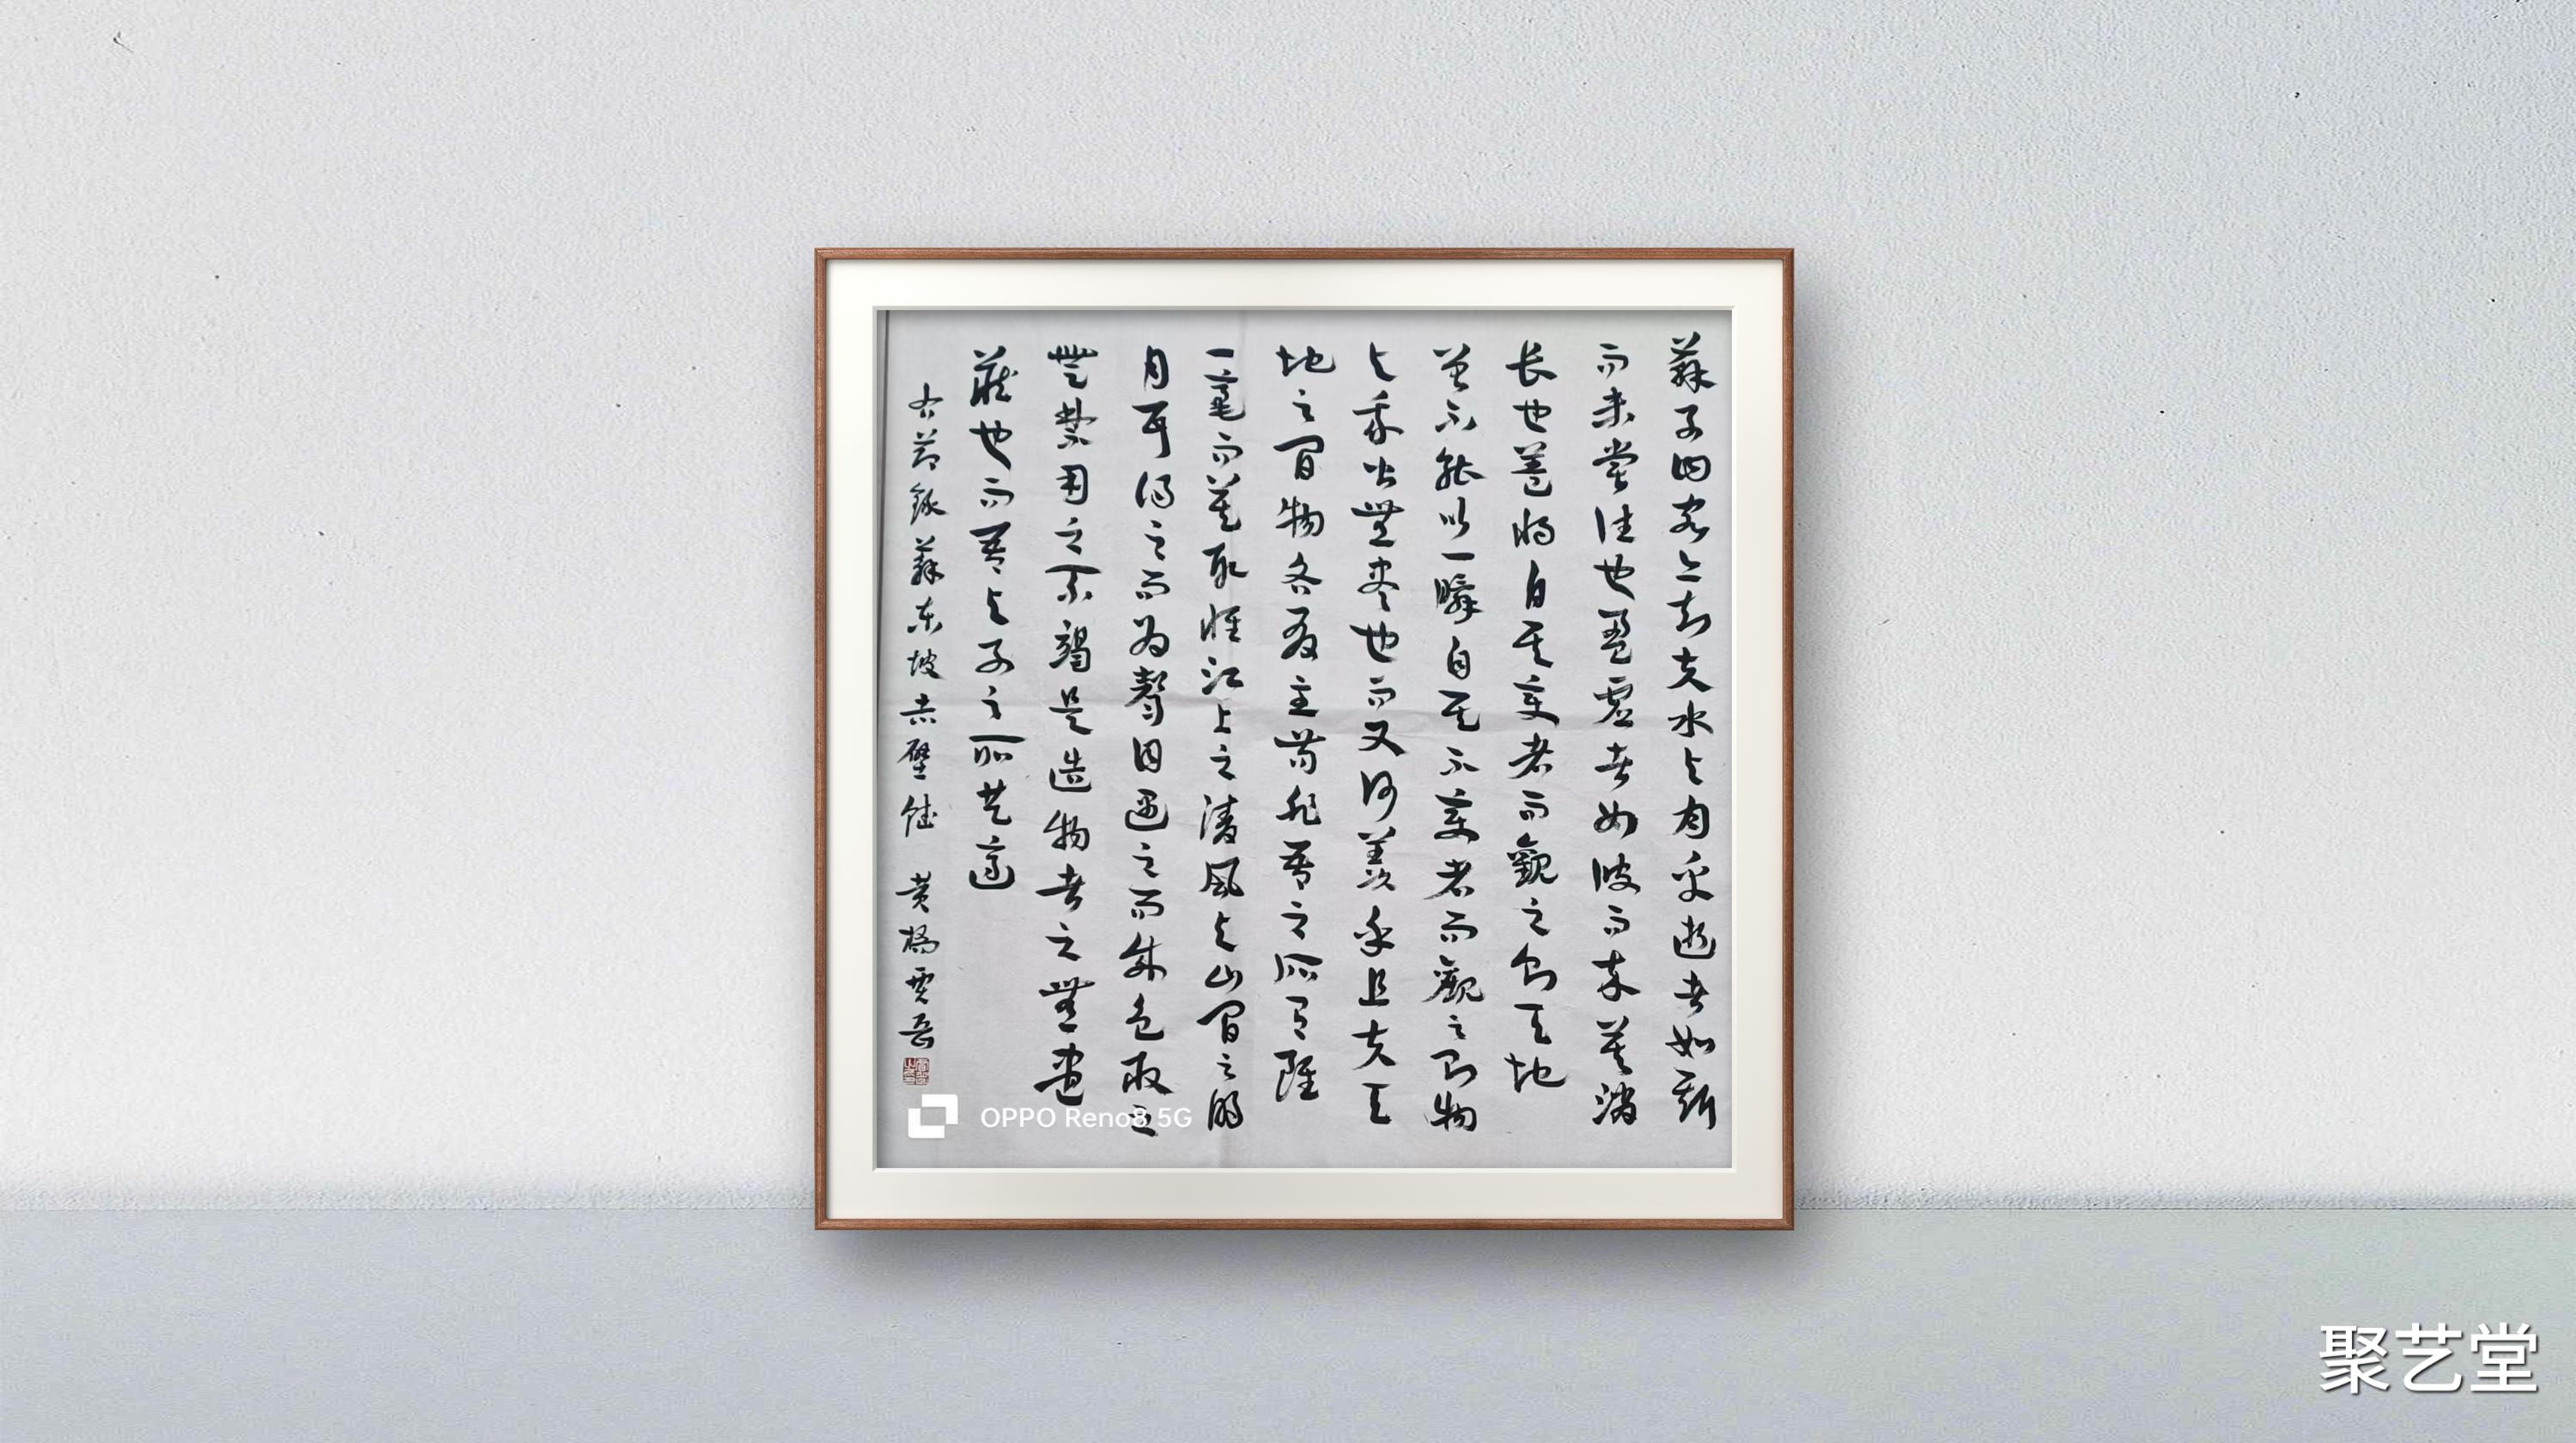 蘇子曰客亦知夫水与月乎逝者如斯
而未嘗往也盈虛者如彼而卒莫消
长也蓋將自其变者而觀之则天地
曾不能以一瞬自其不变者而觀之则物
与我皆無尽也而又何羡乎且夫天
地之间物各有主苟非吾之所有雖
一毫而莫取惟江上之清風与山间之明
月耳得之而为聲目遇之而成色取之
無禁用之不竭是造物者之無盡
藏也而吾与子之所共適
右节錄蘇东坡赤壁赋 黄橋
OPPO Reno8 5G
聚艺堂